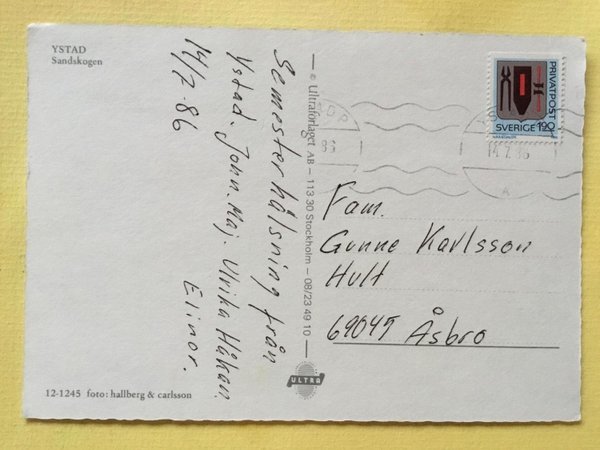 YSTAD
Sandskogen
14/7.86
Semesterhälsning från
Ystad. John. Maj. Ulrika Håkan.
Elinor.
© Ultraförlaget AB – 113 30 Stockholm – 08/23 49 10
ULTRA
PRIVATPOST
SVERIGE 1.90
14.7.86
A
Fam.
Gunne Karlsson
Hult
69045 Åsbro
12-1245 foto: hallberg & carlsson